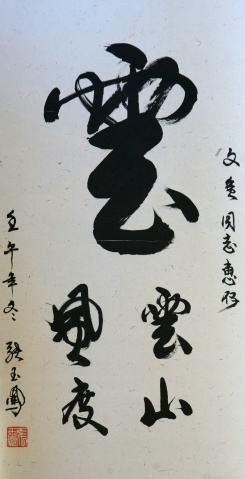 文同志惠存
雲
雲山
風度
壬午年冬 張玉鳳